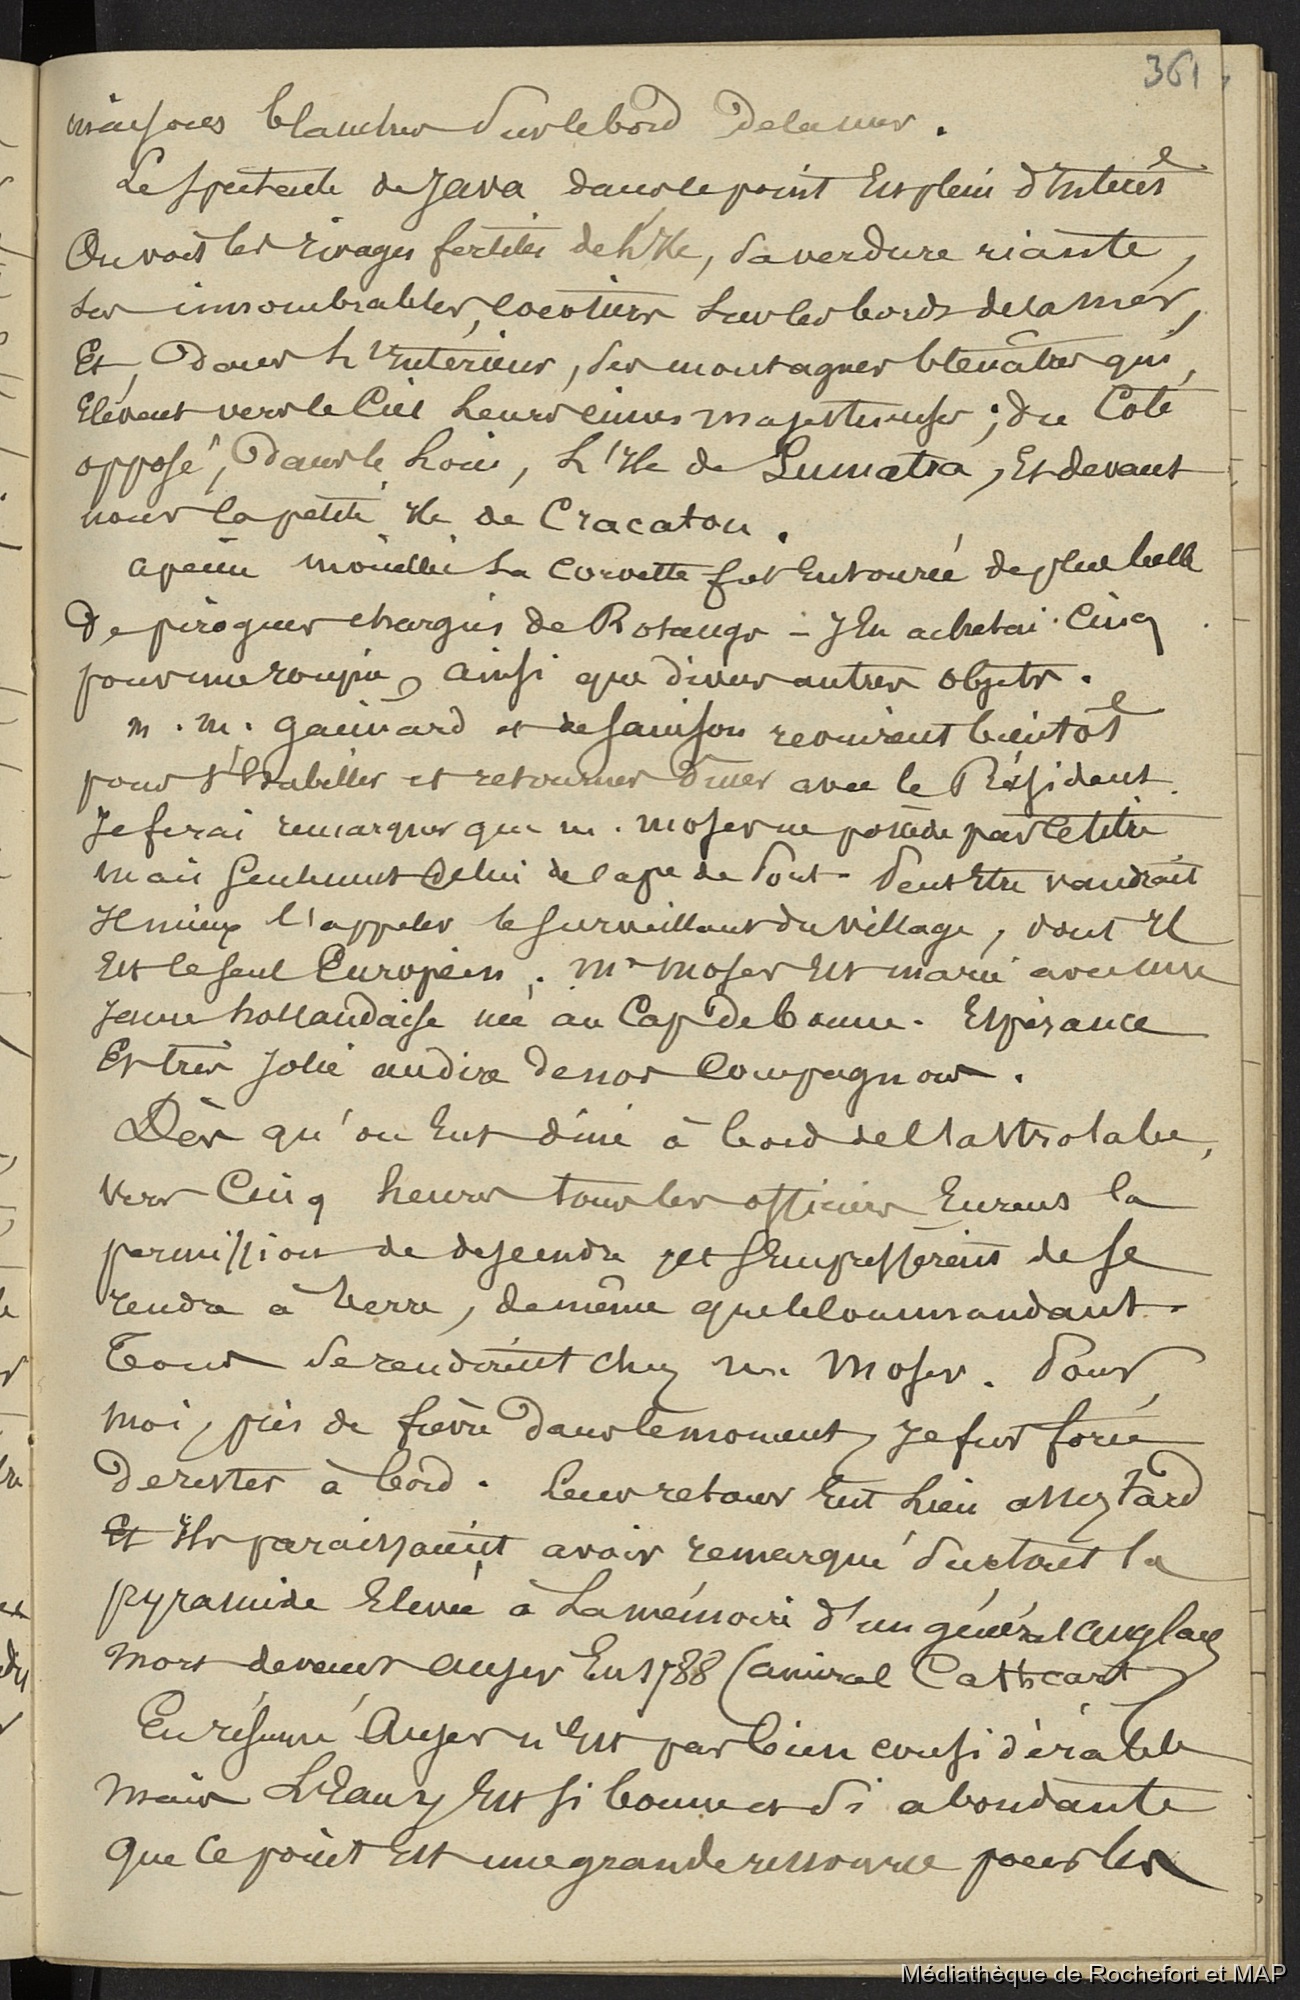 361
maisons blanches sur le bord de la mer.
Le spectacle de Java dans ce point est plein d'Interêt
On voit les rivages fertiles de l'Ile, sa verdure riante,
ses innombrables, cocotiers sur les bords de la mer,
Et, Dans l'Intérieur, des montagnes bleuâtres qui,
Elèvent vers le Ciel leurs cimes majestueuses ; du Coté
opposé, Dans le loin, L'Ile de Sumatra, Et devant
nous la petite Ile de Cracatou.
apeine mouillé La Corvette fut Entourée de plus belle
De pirogues chargées de Rotangs - J'En achetai Cinq
pour une roupie, ainsi que divers autres objets.
m. m. Gaimard et de Sainson revinrent bientôt
pour s'habiller et retourner Diner avec le Résident.
Je ferai remarquer que m. Moser ne possède pas le titre
mais seulement Celui de Peut Etre vaudrait
Il mieux l'appeler le surveillant du village, dont Il
Est le seul Européen. Mr Moser Est marié avec une
Jeune hollandaise née au Cap De bonne. Espérance
Et très Jolie au dire de nos Compagnons.
Dès qu'on Eut diné à bord de l'Astrolabe,
vers Cinq heures tous les officiers Eurent la
permission de descendre et s'Empressèrent de se
rendre à terre, de même que le Commandant.
Tous se rendirent chez m. Moser. Pour
moi, pris de fièvre Dans le moment, Je fus forcé
De rester à bord. Leur retour Eut Lieu assez tard
Et Ils paraissaient avoir remarqué surtout la
pyramide Elevée à La mémoire d'un général anglais
mort devant Anyer En 1788 (amiral Cathcart)
En résumé Anyer n'Est pas bien considérable
mais L'Eau y Est si bonne et si abondante
que ce point Est une grande ressource pour les
Médiathèque de Rochefort et MAP